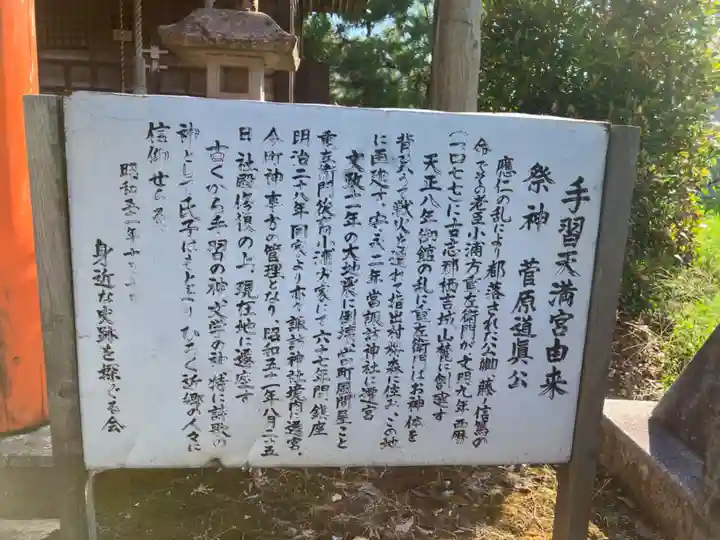 手習天満宮由来
祭神 菅原道眞公
應仁の乱により都落された公卿、藤ノ信篤の
命でその老臣小浦方重左衛門が文明九年西暦
(一四七七)に古志郡栖吉城山麓に創建す
天正八年御館の乱に重左衛門はお神体を
背負って戦火を逃れて指出村桜森に住み、この地
に再建す、安永二年当諏訪神社に遷宮
文政十一年の大地震に倒壊、当町風間呈こと
重左衛門後裔小浦方家にて六十七年間鎮座
明治二十八年同家より亦々諏訪神社境内に遷宮、
今町神事方の管理となり、昭和五一年八月二五
日社殿修復の上、現在地に遷座す
古くから手習の神、文学の神、特に詩歌の
神として氏子はもとより、ひろく近郷の人々に
信仰せらる
昭和五一年十
身近な史跡を探ぐる会